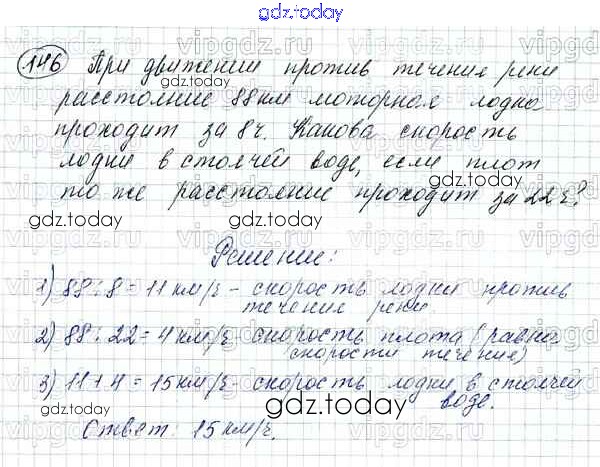 gdz.today
146 При движении против течения реки
расстояние 88 км моторная лодка
gdz.today gdz.today
проходит за 8 ч. Какова скорость
лодки в стоячей воде, если плот
то же расстояние проходит за 22 ч?
gdz.today gdz.today
Решение:
1) 88 : 8 = 11 км/ч - скорость лодки против
течения реки
2) 88 : 22 = 4 км/ч - скорость плота (равна
скорости течения)
3) 11 + 4 = 15 км/ч - скорость лодки в стоячей
воде.
gdz.today gdz.today
gdz.today
Ответ: 15 км/ч.